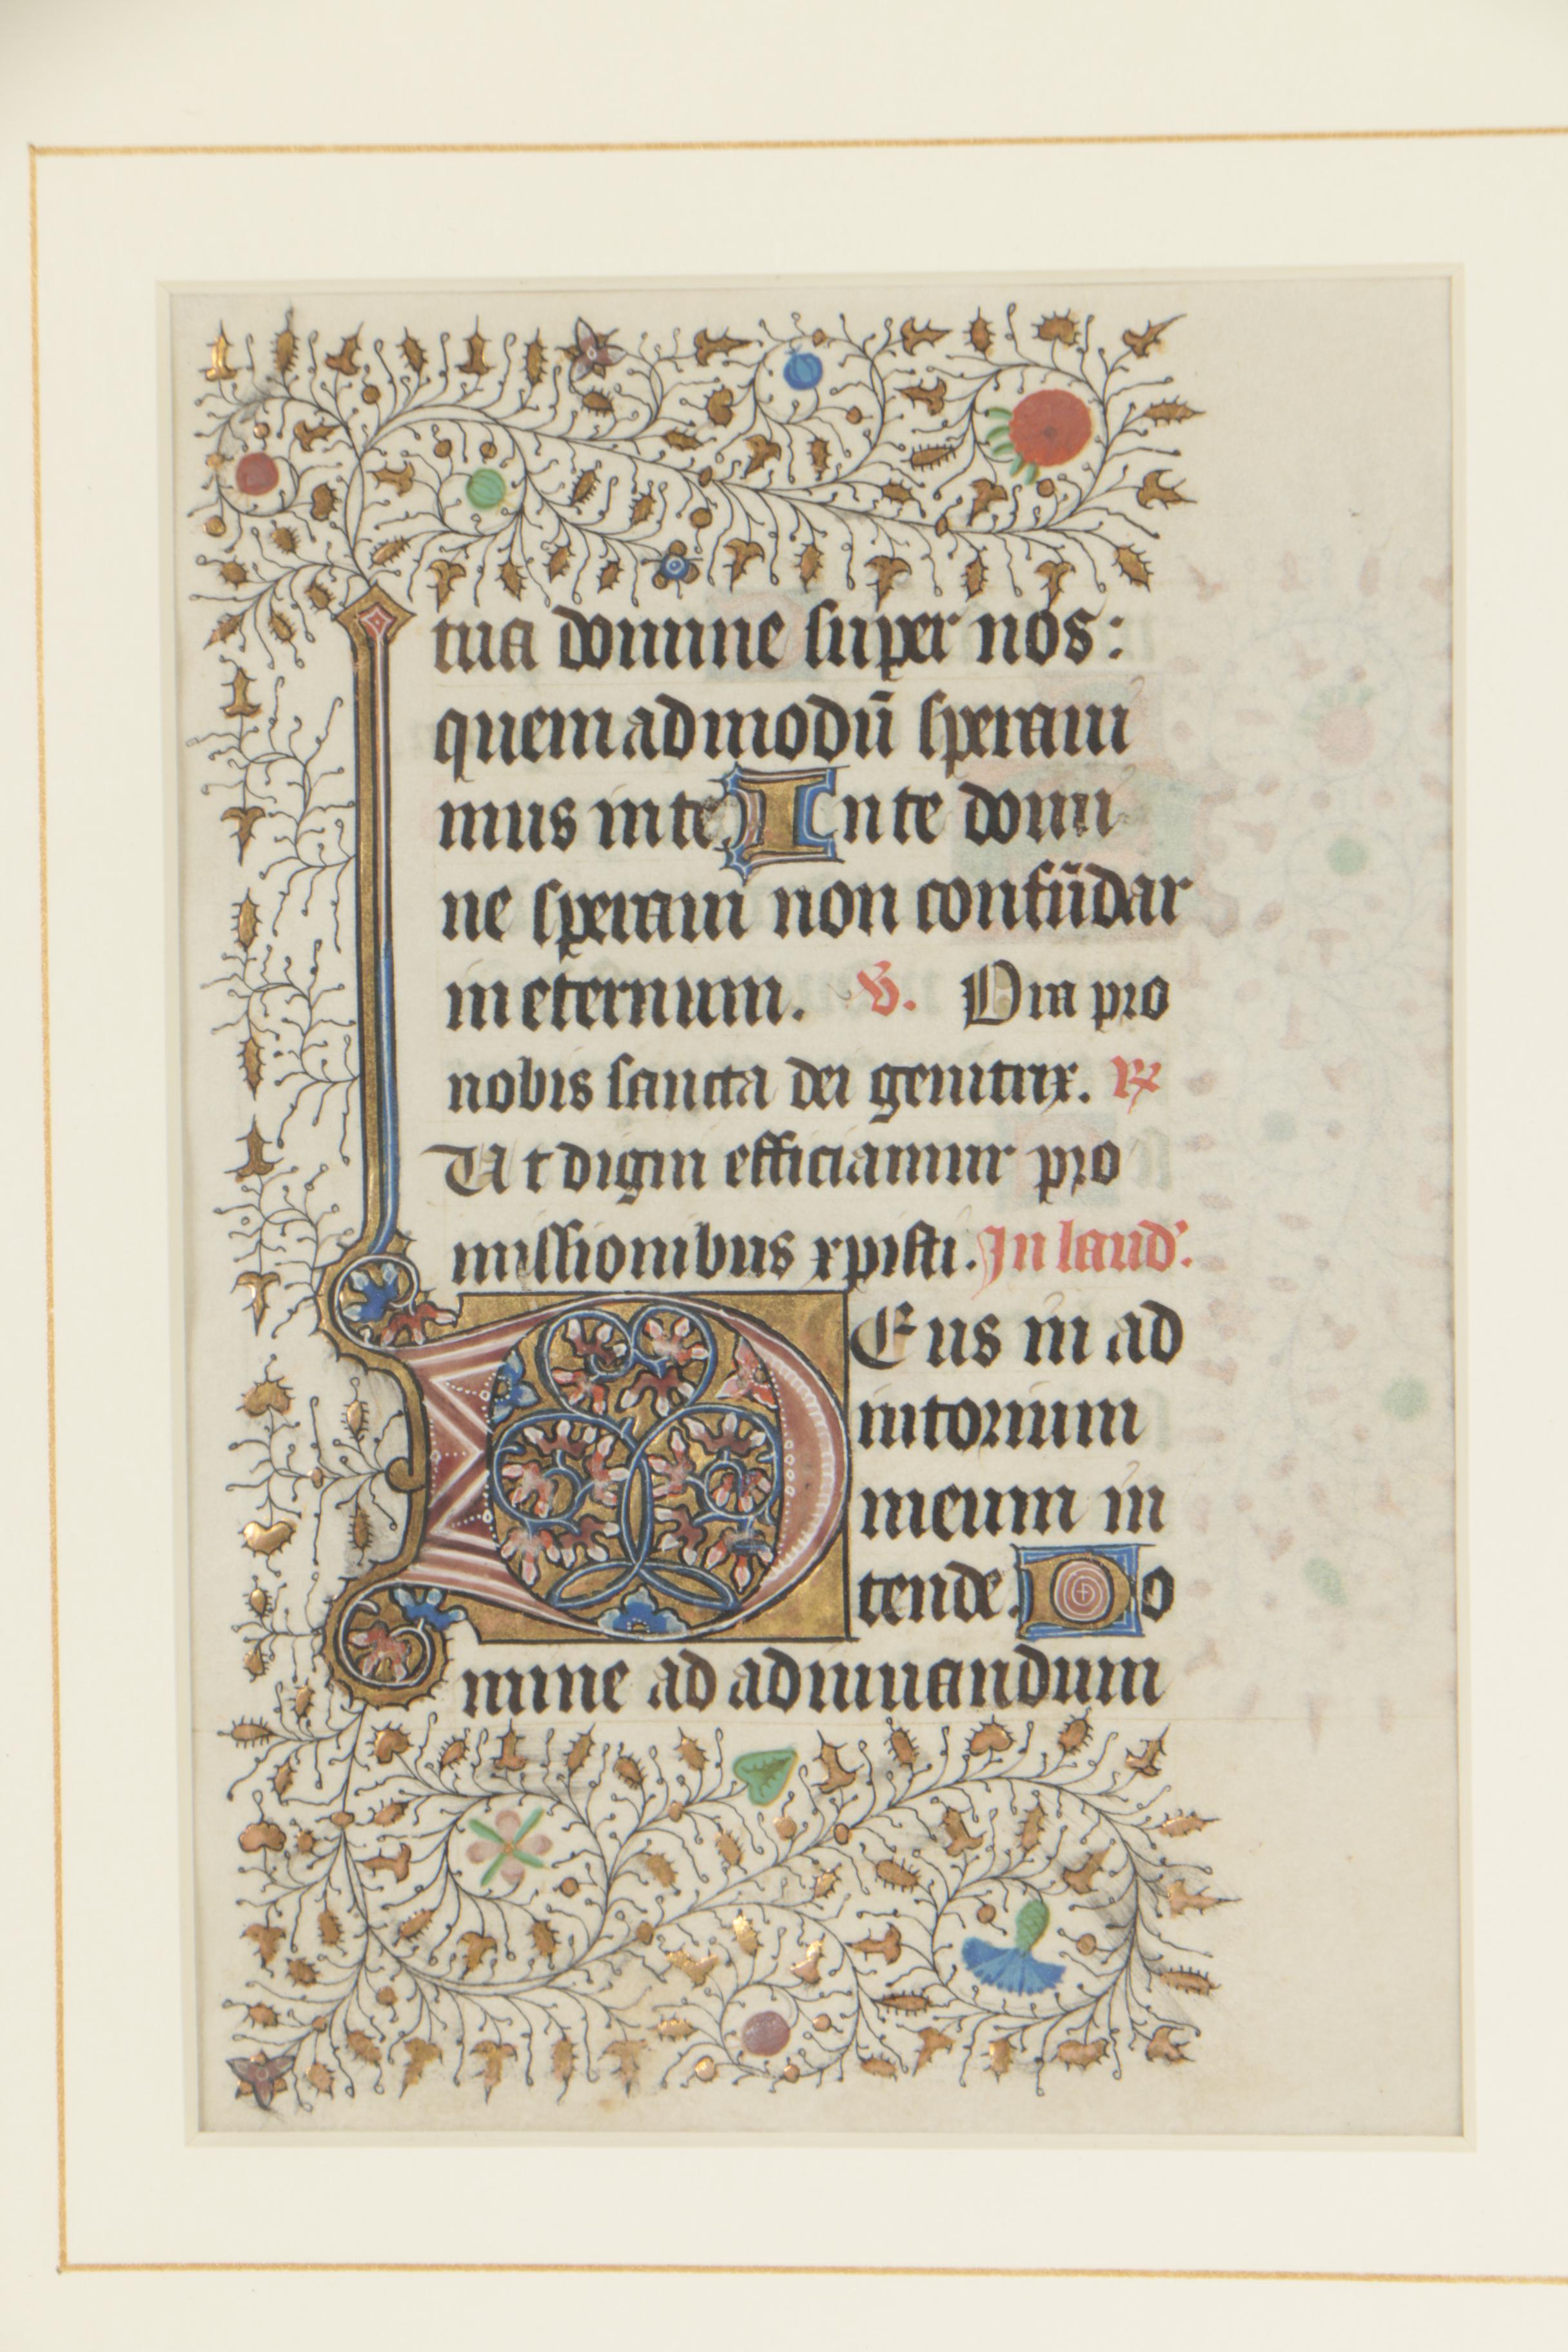 tua domine super nos:
quemadmodū speraui
mus in te In te domi
ne speraui non confūdar
in eternum. V. Ora pro
nobis sancta dei genitrix. R
Ut digni efficiamur pro
missionibus xpisti. In laud'.
Deus in ad
iutorium
meum in
tende. Do
mine ad adiuuandum